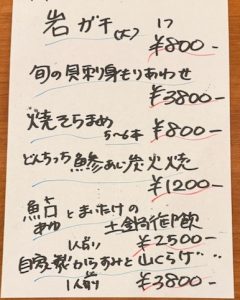 岩ガキ(大) 1ケ
¥800-
旬の貝刺身もりあわせ
¥3800-
焼そらまめ
5~6本 ¥800-
どんちっち鯵あじ炭火焼
¥1200-
鮎とまいたけの
あゆ 土鍋御飯
1人前 ¥2500-
自家製からすみと山くらげ
1人前 ¥3800-